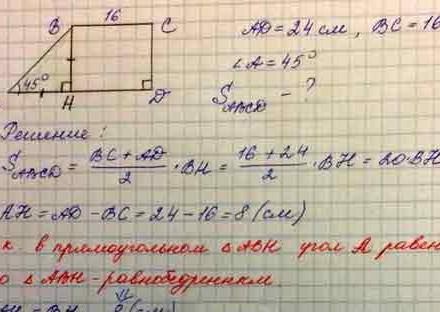 16
B C
AD = 24 см, BC = 16
∠A = 45°
45°
H D
S_ABCD - ?
Решение:
S_ABCD = (BC + AD)/2 · BH = (16 + 24)/2 · BH = 20 · BH
AH = AD - BC = 24 - 16 = 8 (см)
к. в прямоугольном △ABH угол A равен
о △ABH - равнобедренный
= BH